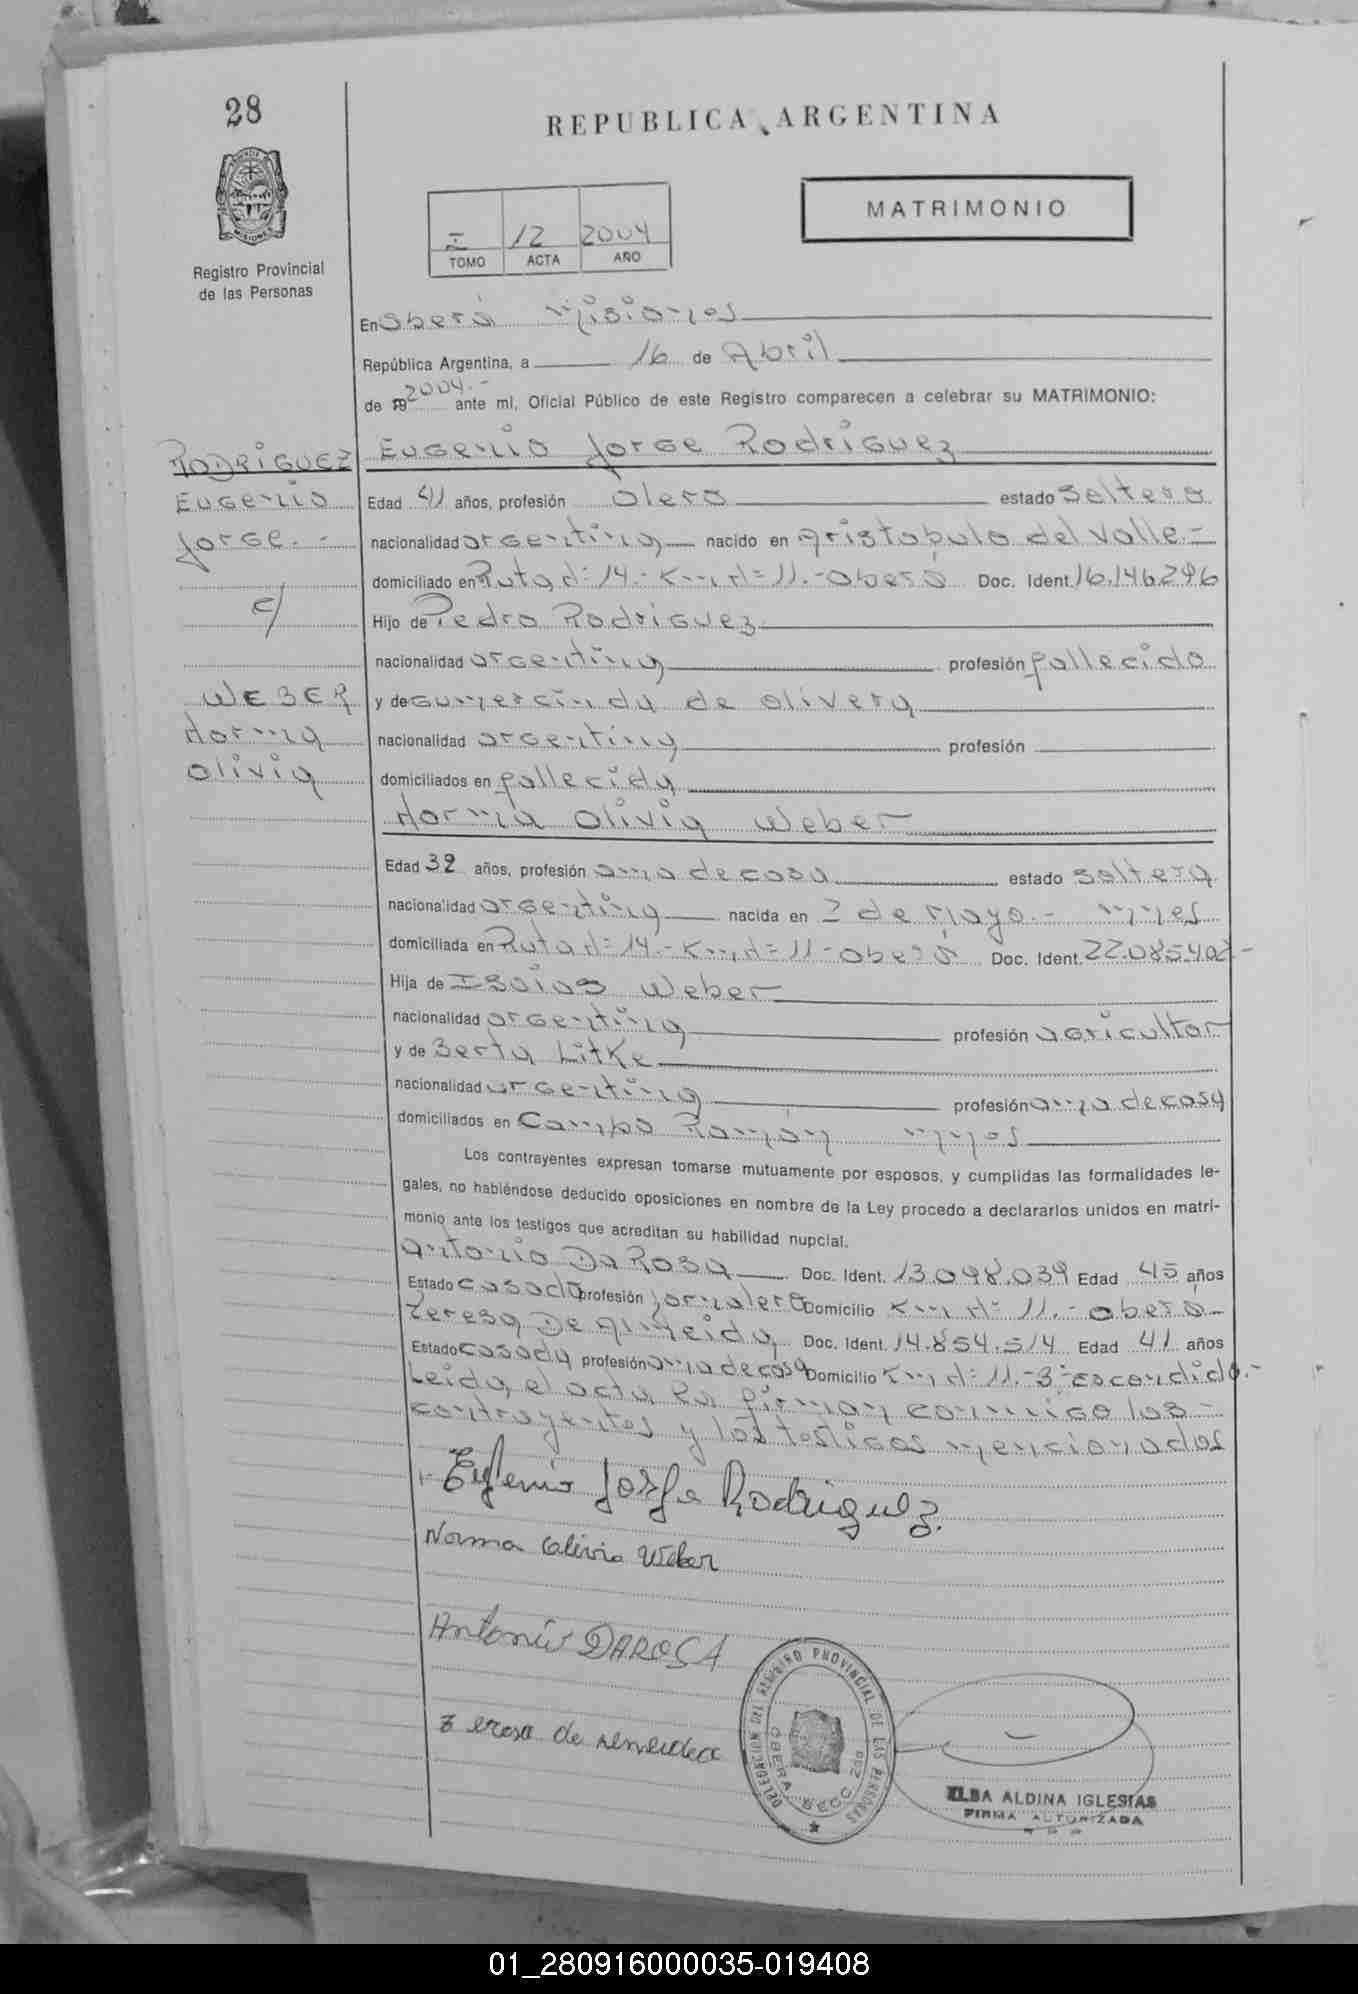 28
REPUBLICA ARGENTINA
MATRIMONIO
I 12 2004
TOMO ACTA AÑO
Registro Provincial
de las Personas
En Oberá Misiones
República Argentina, a 16 de Abril
de 19 2004.- ante mí, Oficial Público de este Registro comparecen a celebrar su MATRIMONIO:
RODRIGUEZ
Eugenio
Jorge.-
c/
WEBER
Norma
Olivia
Eugenio Jorge Rodriguez
Edad 41 años, profesión olero estado soltero
nacionalidad argentina nacido en Aristobulo del Valle-
domiciliado en Ruta N= 14.- Km N= 11.- Oberá Doc. Ident. 16.146.296
Hijo de Pedro Rodriguez
nacionalidad argentina profesión fallecido
y de Gumercinda de Olivera
nacionalidad argentina profesión
domiciliados en fallecida
Norma Olivia Weber
Edad 32 años, profesión ama de casa estado soltera
nacionalidad argentina nacida en 2 de Mayo.- Mnes
domiciliada en Ruta N= 14.- Km N= 11 - Oberá Doc. Ident. 22.085.402-
Hija de Isaias Weber
nacionalidad argentina profesión agricultor
y de Berta Litke
nacionalidad argentina profesión ama de casa
domiciliados en Campo Ramon Mnes
Los contrayentes expresan tomarse mutuamente por esposos, y cumplidas las formalidades le-
gales, no habiéndose deducido oposiciones en nombre de la Ley procedo a declararlos unidos en matri-
monio ante los testigos que acreditan su habilidad nupcial.
Antonio Da Rosa Doc. Ident. 13.098.039 Edad 45 años
Estado casado profesión jornalero Domicilio Km N= 11.- Oberá
Teresa De Almeida Doc. Ident. 14.854.514 Edad 41 años
Estado casada profesión ama de casa Domicilio Km N= 11.- B= Escondido.-
Leida el acta la firman conmigo los-
contrayentes y los testigos mencionados
Eugenio Jorge Rodriguez.
Norma Olivia Weber
Antonio DAROSA
Teresa de
DELEGACION DEL REGISTRO PROVINCIAL DE LAS PERSONAS
OBERA SECC. 2da
ELBA ALDINA IGLESIAS
FIRMA AUTORIZADA
01_280916000035-019408